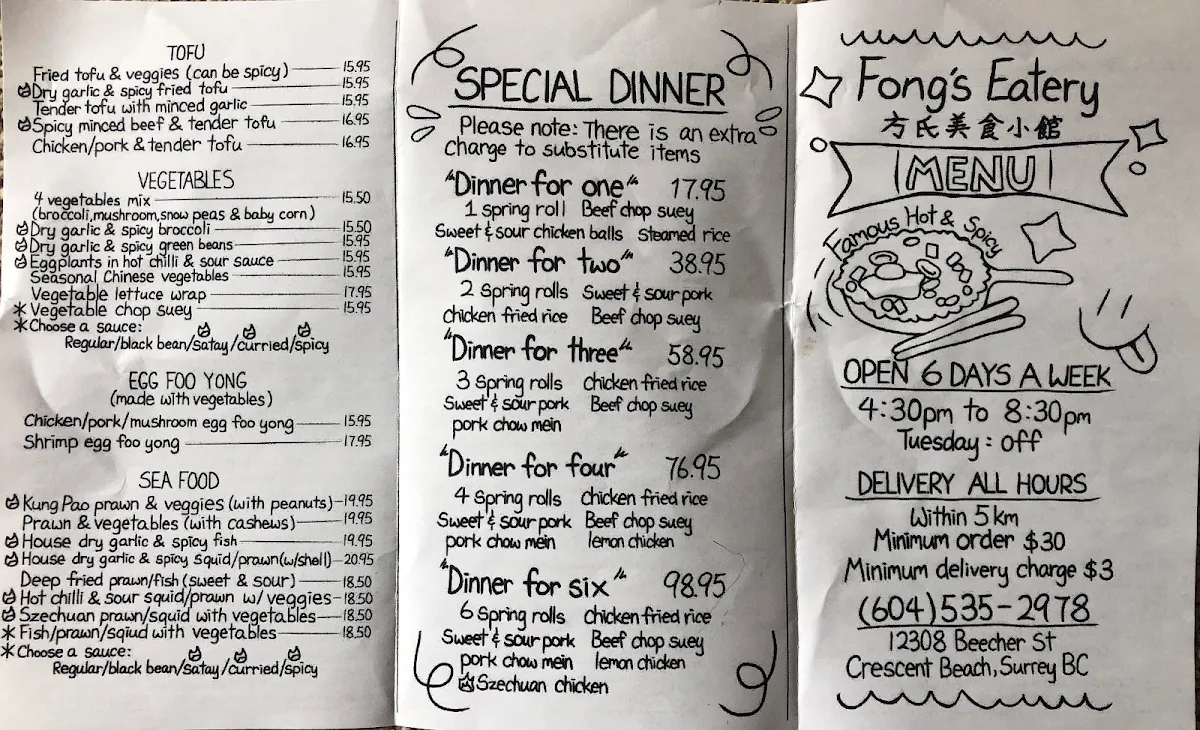 TOFU
Fried tofu & veggies (can be spicy) 15.95
Dry garlic & spicy fried tofu 15.95
Tender tofu with minced garlic 15.95
Spicy minced beef & tender tofu 16.95
Chicken/pork & tender tofu 16.95
VEGETABLES
4 vegetables mix 15.50
(broccoli,mushroom,snow peas & baby corn)
Dry garlic & spicy broccoli 15.50
Dry garlic & spicy green beans 15.95
Eggplants in hot chilli & sour sauce 15.95
Seasonal Chinese vegetables 15.95
Vegetable lettuce wrap 17.95
* Vegetable chop suey 15.95
* Choose a sauce:
Regular/black bean/satay/curried/spicy
EGG FOO YONG
(made with vegetables)
Chicken/pork/mushroom egg foo yong 15.95
Shrimp egg foo yong 17.95
SEA FOOD
Kung Pao prawn & veggies (with peanuts) 19.95
Prawn & vegetables (with cashews) 19.95
House dry garlic & spicy fish 19.95
House dry garlic & spicy squid/prawn(w/shell) 20.95
Deep fried prawn/fish (sweet & sour) 18.50
Hot chilli & sour squid/prawn w/ veggies 18.50
Szechuan prawn/squid with vegetables 18.50
* Fish/prawn/sqiud with vegetables 18.50
* Choose a sauce:
Regular/black bean/satay/curried/spicy
SPECIAL DINNER
Please note: There is an extra
charge to substitute items
"Dinner for one" 17.95
1 spring roll Beef chop suey
Sweet & sour chicken balls steamed rice
"Dinner for two" 38.95
2 spring rolls Sweet & sour pork
chicken fried rice Beef chop suey
"Dinner for three" 58.95
3 spring rolls Chicken fried rice
Sweet & sour pork Beef chop suey
pork chow mein
"Dinner for four" 76.95
4 spring rolls chicken fried rice
Sweet & sour pork Beef chop suey
pork chow mein lemon chicken
"Dinner for six" 98.95
6 spring rolls Chicken fried rice
Sweet & sour pork Beef chop suey
pork chow mein lemon chicken
Szechuan chicken
Fong's Eatery
方氏美食小館
MENU
Famous Hot & Spicy
OPEN 6 DAYS A WEEK
4:30pm to 8:30pm
Tuesday: off
DELIVERY ALL HOURS
Within 5 km
Minimum order $30
Minimum delivery charge $3
(604)535-2978
12308 Beecher St
Crescent Beach, Surrey BC